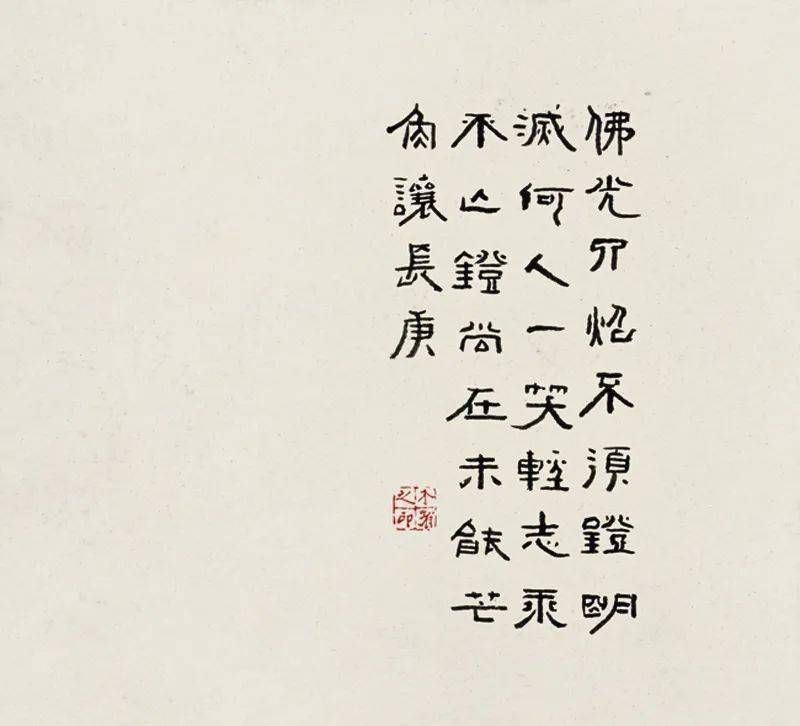 佛光四炤不須鐙明
滅何人一笑輕志乘
不亡鐙尚在未能芒
角讓長庚